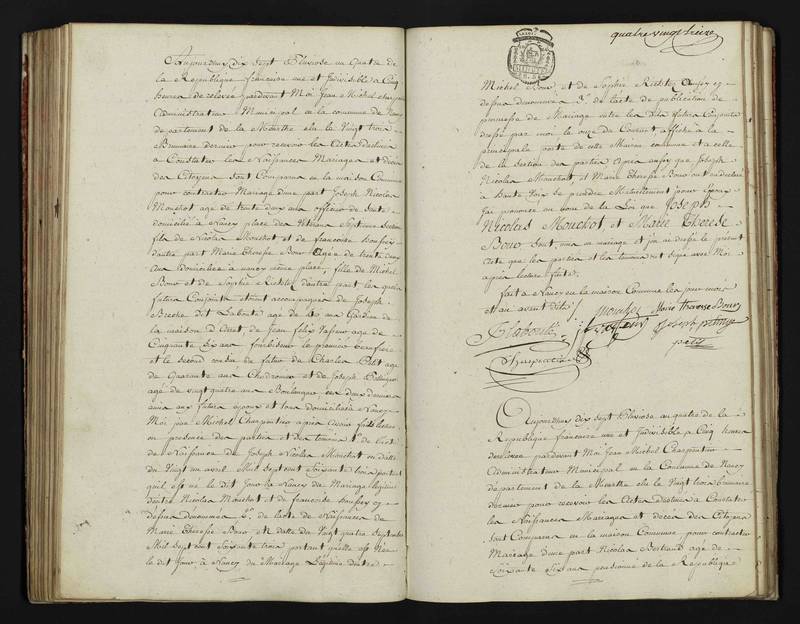 Aujourdhuy dix sept Pluviose an Quatre de
la Republique francaise une et Indivisible a Cinq
heures de relevée pardevant Moi Jean Michel
Administrateur Municipal en la commune de Nancy
departement de la Meurthe elu le Vingt trois
Brumaire dernier pour recevoir les Actes destines
a Constater les Naissances Mariages et decès
des Citoyens sont Comparus en la maison Commune
pour contracter Mariage d'une part Joseph Nicolas
Mouchot age de trente deux ans officier de Santé
domicilié a Nancy place des Septieme Section
fils de Nicolas Mouchot et de francoise
d'autre part Marie Therese Bour Agée de trente
ans domiciliée a nancy même place, fille de Michel
Bour et de Sophie d'autre part les quels
futurs Conjoints etoient accompagnés de Joseph
dit Laborté agé de ans Gardien de
la maison de Jean felix Vasseur age de
Cinquante ans le premier
et le second cousin du futur de Charles Petit age
de Quarante ans et de Joseph
agé de vingt quatre ans Boulanger, les deux derniers
amis aux futurs epoux et tous domiciliés a Nancy
Moi Jean Michel Charpentier après avoir fait lecture
en presence des parties et des temoins 1.° de l'acte
de Naissance de Joseph Nicolas Mouchot en datte
du Vingt un avril Mil sept cent Soixante trois portant
qu'il est né le dit Jour a Nancy du Mariage legitime
d'entre Nicolas Mouchot et de francoise
dessus denommés 2.° de l'acte de Naissance de
Marie Therese Bour en datte du Vingt quatre Septembre
Mil Sept cent soixante trois portant qu'elle est Née
le dit jour a Nancy du Mariage Légitime d'entre
quatre vingt treize
Michel Bour, et de Sophie aussy cy
dessus denommés 3.° de l'acte de publication de
promesse de Mariage entre les dits futurs Conjoints
dressé par moi le onze du Courant affiché a la
principale porte de cette Maison commune et a celle
de la Section des parties après aussy que Joseph
Nicolas Mouchot, et Marie Therese Bour ont declaré
a haute Voix se prendre Mutuellement pour epoux
J'ai prononcé au nom de la Loi que Joseph
Nicolas Mouchot, et Marie Therese
Bour sont unis en mariage et j'ai redigé le présent
acte que les parties et les temoins ont signé avec Moi
après lecture faite.
fait a Nancy en la maison Commune les jour mois
et an avant dits
Mouchot Marie Therese Bour
Laborté Vasseur Joseph
petit
Charpentier
Aujourdhuy dix sept Pluviose an quatre de la
Republique francaise une et Indivisible a Cinq heures
de relevée pardevant Moi Jean Michel Charpentier
Administrateur Municipal en la Commune de Nancy
departement de la Meurthe elu le Vingt trois brumaire
dernier pour recevoir les Actes destinés a Constater
les Naissances Mariages et decés des Citoyens
sont Comparus en la maison Commune pour contracter
Mariage d'une part Nicolas Bertrand age de
Soixante Six ans pensionné de la Republique